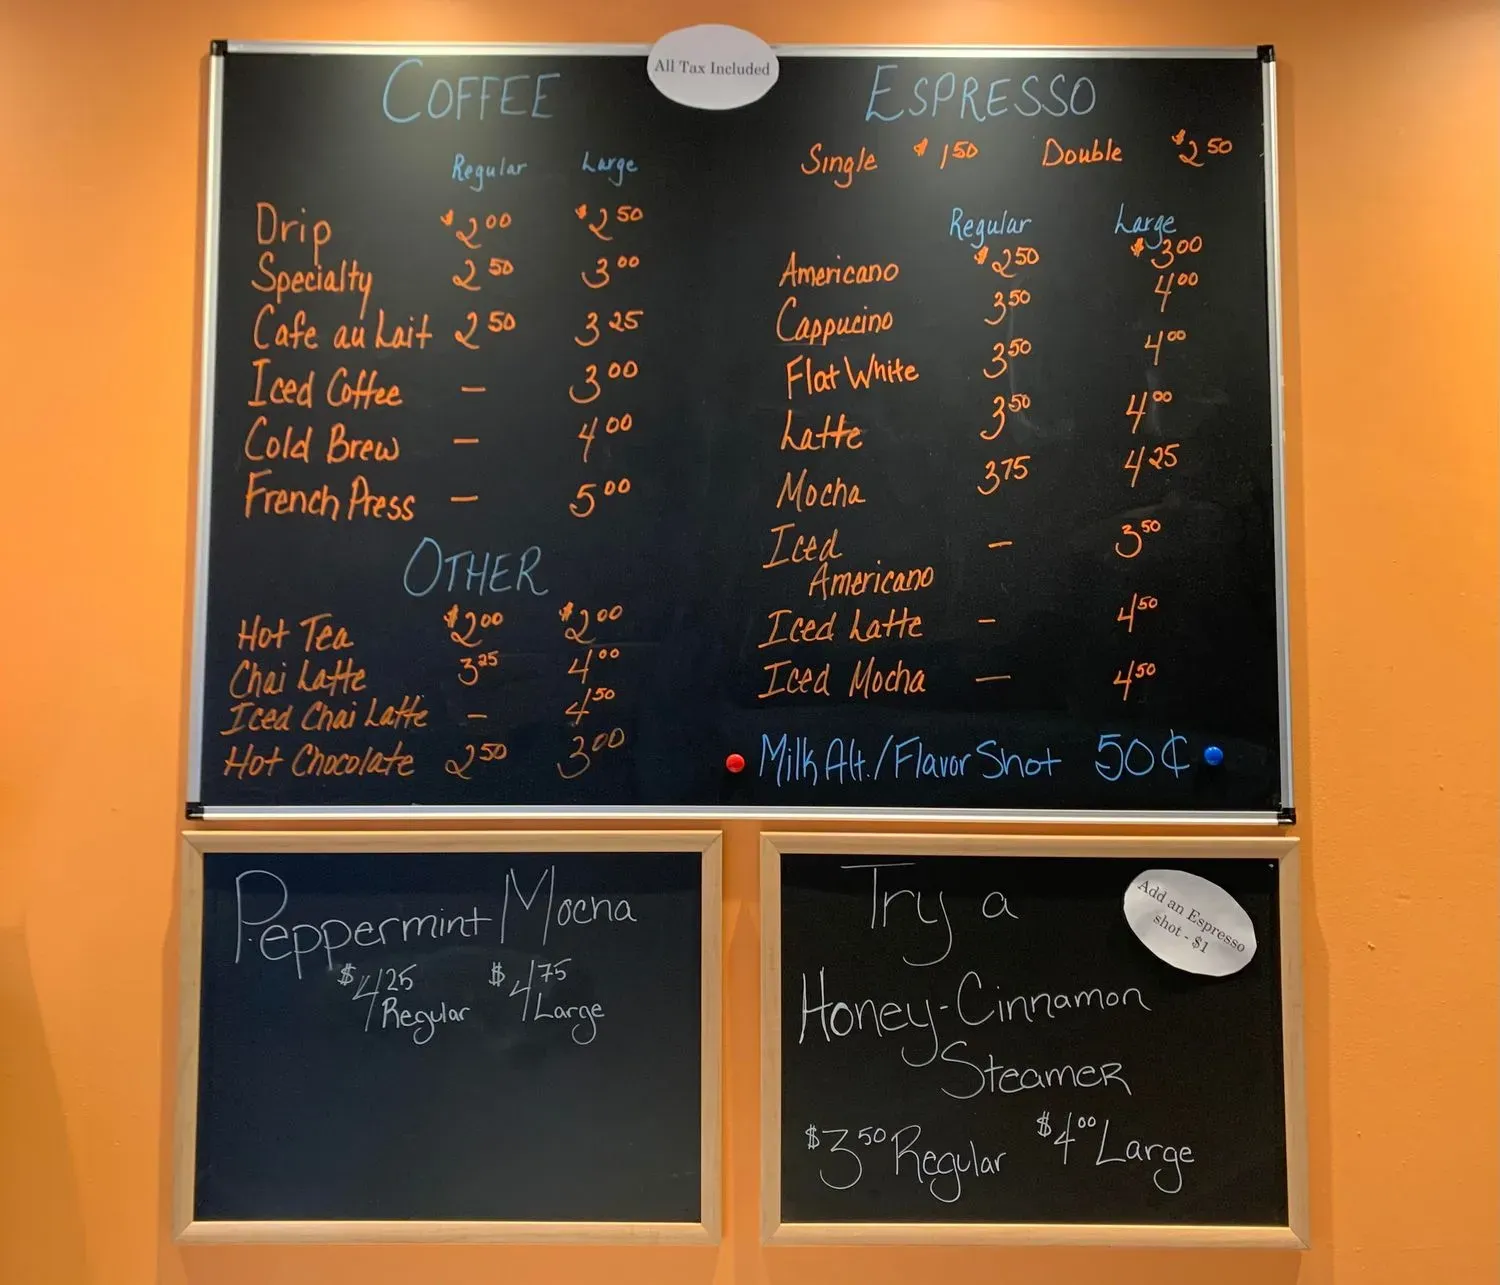 All Tax Included
COFFEE
Regular Large
Drip $2.00 $2.50
Specialty 2.50 3.00
Cafe au Lait 2.50 3.25
Iced Coffee — 3.00
Cold Brew — 4.00
French Press — 5.00
OTHER
Hot Tea $2.00 $2.00
Chai Latte 3.25 4.00
Iced Chai Latte – 4.50
Hot Chocolate 2.50 3.00
ESPRESSO
Single $1.50 Double $2.50
Regular Large
Americano $2.50 $3.00
Cappucino 3.50 4.00
Flat White 3.50 4.00
Latte 3.50 4.00
Mocha 3.75 4.25
Iced — 3.50
Americano
Iced Latte – 4.50
Iced Mocha — 4.50
Milk Alt./Flavor Shot 50¢
Peppermint Mocha
$4.25 $4.75
Regular Large
Try a
Honey-Cinnamon
Steamer
$3.50 Regular $4.00 Large
Add an Espresso
shot - $1